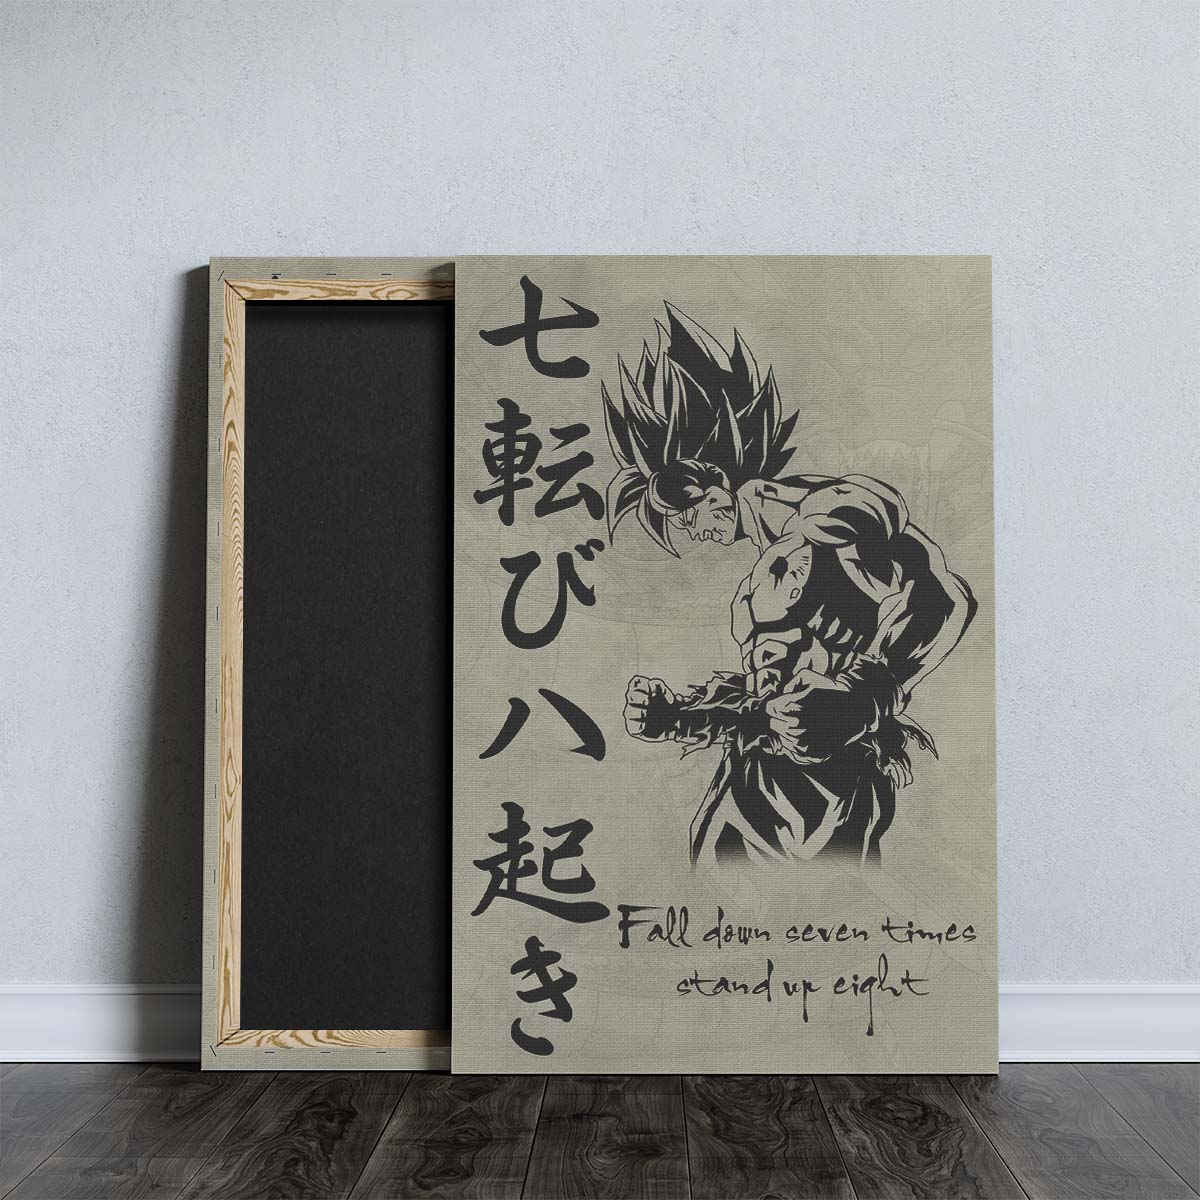 七転び八起き
Fall down seven times
stand up eight